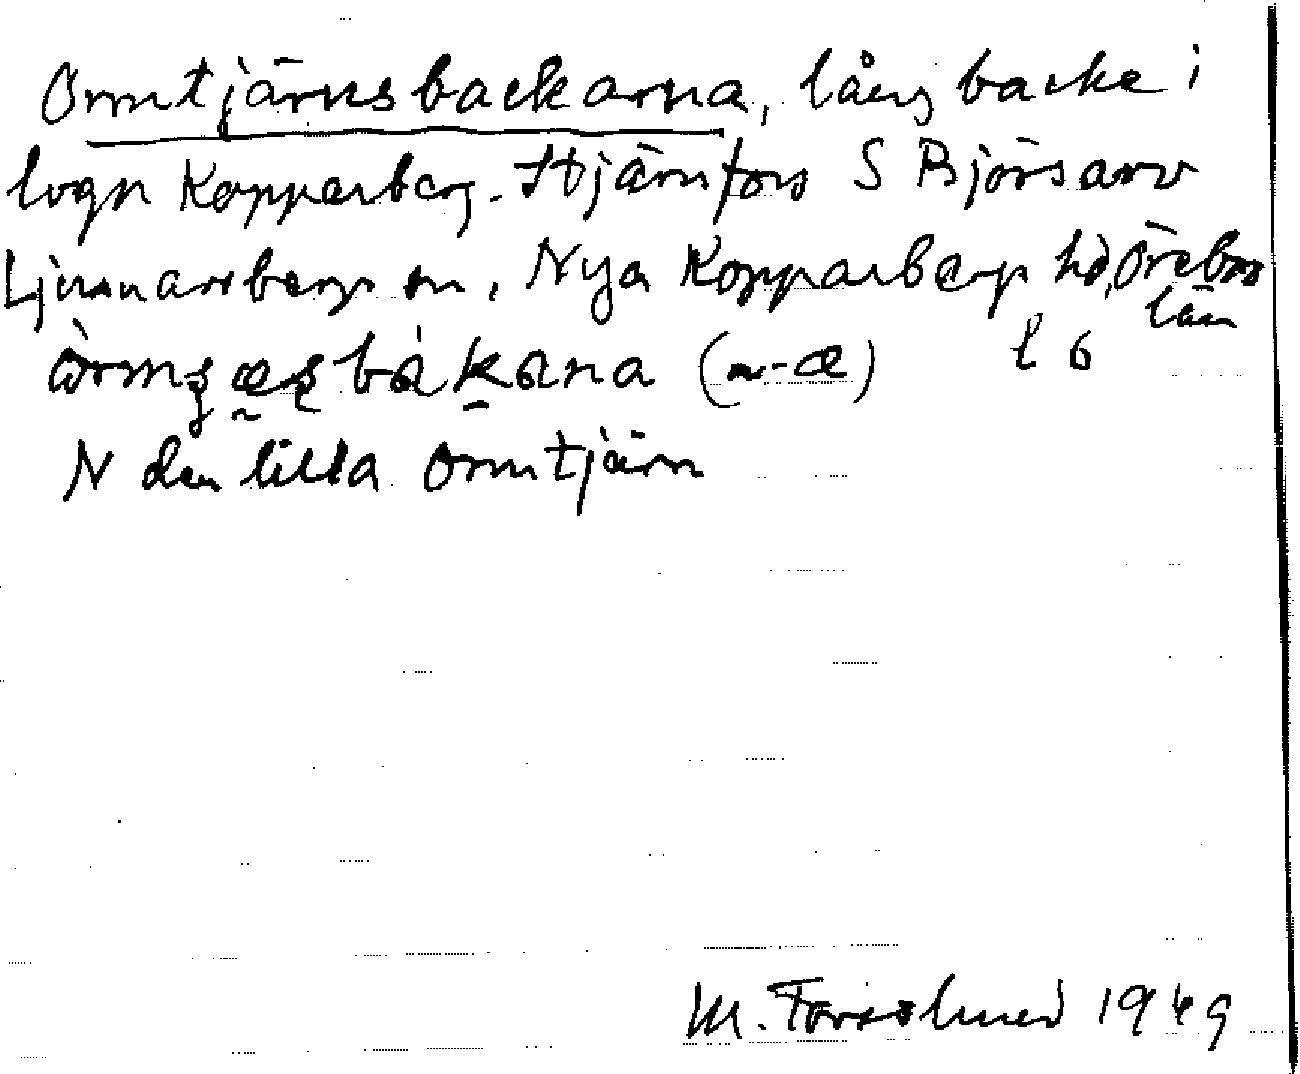 Ormtjärnsbackarna, lång backe i
lvgn Kopparberg-Stjärnfors S Björsarv
Ljusnarsbergs sn, Nya Kopparbergs hd, Örebro
län
(m-æ) l 6
N den lilla Ormtjärn
M. Forsslund 1949